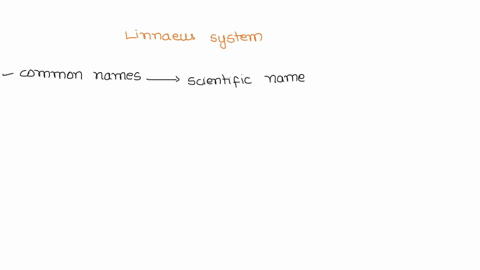 Linnaeus system
- common names → scientific name